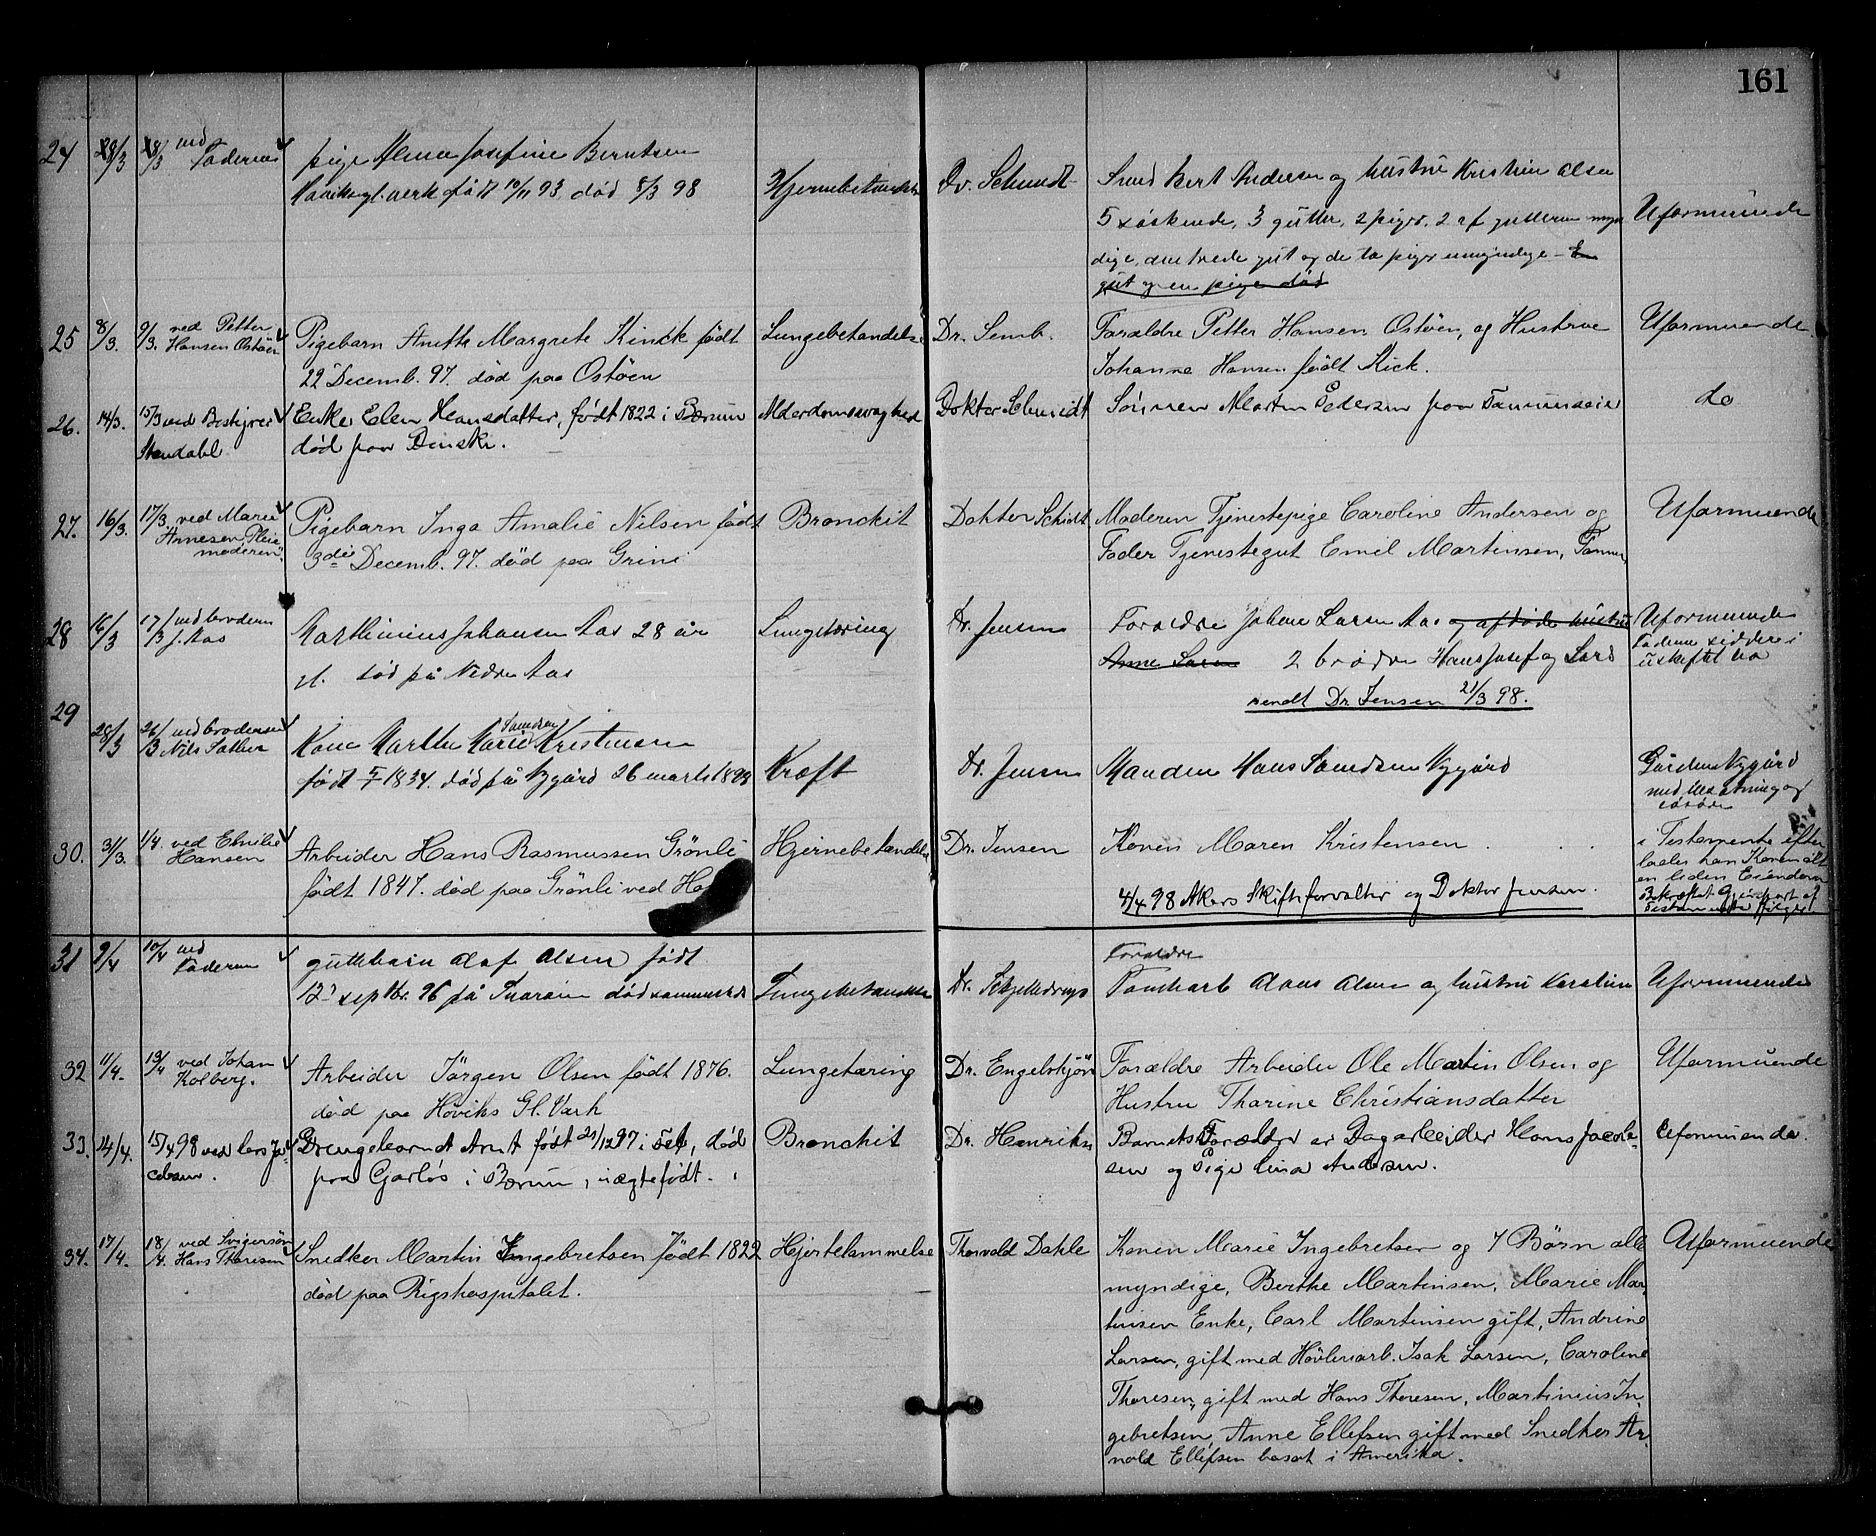 161
24 8/3 8/3 ved Faderen
pige Alma Josefine Berntsen
født 10/11 93 død 8/3 98
Hjernebetændelse
Dr. Schmidt
Smed Bert Andersen og hustru Kristine Olsen
5 søskende, 3 gutter, 2 piger, 2 af gutterne myn
dige, den tredie gut og de to piger umyndige - En
gut og en pige død
Uformuende
25 8/3. 9/3. ved Petter
Hansen Ostøen
Pigebarn Anitte Margrete Kinck født
22 Decemb. 97. død paa Ostøen
Lungebetændelse
Dr. Semb.
Forældre Petter Hansen Ostøen, og Hustrue
Johanne Hansen født Kick.
Uformuende
26. 14/3. 15/3 ved Bestyrer
Stendahl
Enke Elen Hansdatter, født 1822 i Bærum
død paa Dønski.
Alderdomssvaghed
Doktor Schmidt
Sønnen Morten Pedersen paa Tanumseie
do
27. 16/3. 17/3. ved Marie
Arnesen, Pleie
moderen.
Pigebarn Inga Amalie Nilsen født
3die Decemb. 97. død paa Grini
Bronckit
Doktor Schidt
Moderen Tjenestepige Caroline Andersen og
Fader Tjenestegut Emil Martinsen, Tanum
Uformuende
28 16/3 17/3 ved broderen
J. Aas
Marthinius Johansen Aas 28 år
gl. død på Nedre Aas
Lungetæring
Dr. Jensen
Forældre Johan Larsen Aas og afdøde hustru
Anne Larsen 2 brødre Hans Josef og Lars
sendt Dr. Jensen 21/3 98.
Uformuende
Faderen sidder i
uskiftet bo
29 26/3 26/3 ved broderen
Nils Sæther
Kone Marthe Marie Samdsen Kristensen
født 1834. død på Nygård 26 marts 1898
Kræft
Dr. Jensen
Manden Hans Samdsen Nygård
Gården Nygård
med besætning og
løsøre
30. 31/3. 1/4. ved Emilie
Hansen
Arbeider Hans Rasmussen Grönli
født 1847. død paa Grönli ved
Hjernebetændelse
Dr. Jensen
Konen Maren Kristensen
4/4 98 Akers Skifteforvalter og Doktor Jensen.
i Testamente efter
lader han Konen alt
en liden Eiendom
Bekræftet Gjenpart af
Testamente følger
31 9/4 10/4 ved
Faderen
guttebarn Olaf Olsen født
12' septbr. 96 på Snarøen død sammesteds
Lungebetændelse
Dr. Schjelderup
Forældre
Tomtearb Olaus Olsen og hustru Karoline
Uformuende
32 11/4. 13/4 ved Johan
Kolberg.
Arbeider Jörgen Olsen født 1876.
død paa Høviks Gl. Værk
Lungetæring
Dr. Engelskjön
Forældre Arbeider Ole Martin Olsen og
Hustru Tharine Christiansdatter
Uformuende
33. 14/4. 15/4 98 ved Lars Ja-
cobsen.
Drengebarnet Arnt født 21/12 97 i Fet, død
paa Gjarløs i Bærum, uægtefødt.
Bronckit
Dr. Henriksen
Barnets Forældre er Dagarbeider Hans Jacob-
sen og Pige Lina Andersen.
Uformuende.
34. 17/4. 18/4. ved Svigersøn
Hans Thoresen
Snedker Martin Engebretsen født 1822
død paa Rigshospitalet.
Hjertelammelse
Thorvald Dahle
Konen Marie Ingebretsen og 7 Børn alle
myndige, Berthe Martinsen, Marie Mar-
tinsen Enke, Carl Martinsen gift, Andrine
Larsen, gift med Høvleriarb. Isak Larsen, Caroline
Thoresen, gift med Hans Thoresen, Martinius In-
gebretsen, Anne Ellefsen gift med Snedker Ar-
nold Ellefsen bosat i Amerika.
Uformuende